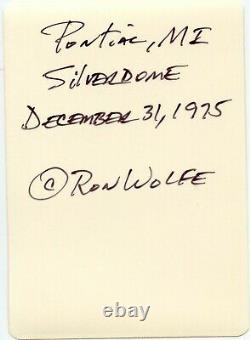 Pontiac, MI
Silverdome
December 31, 1975
©Ron Wolfe
ebay